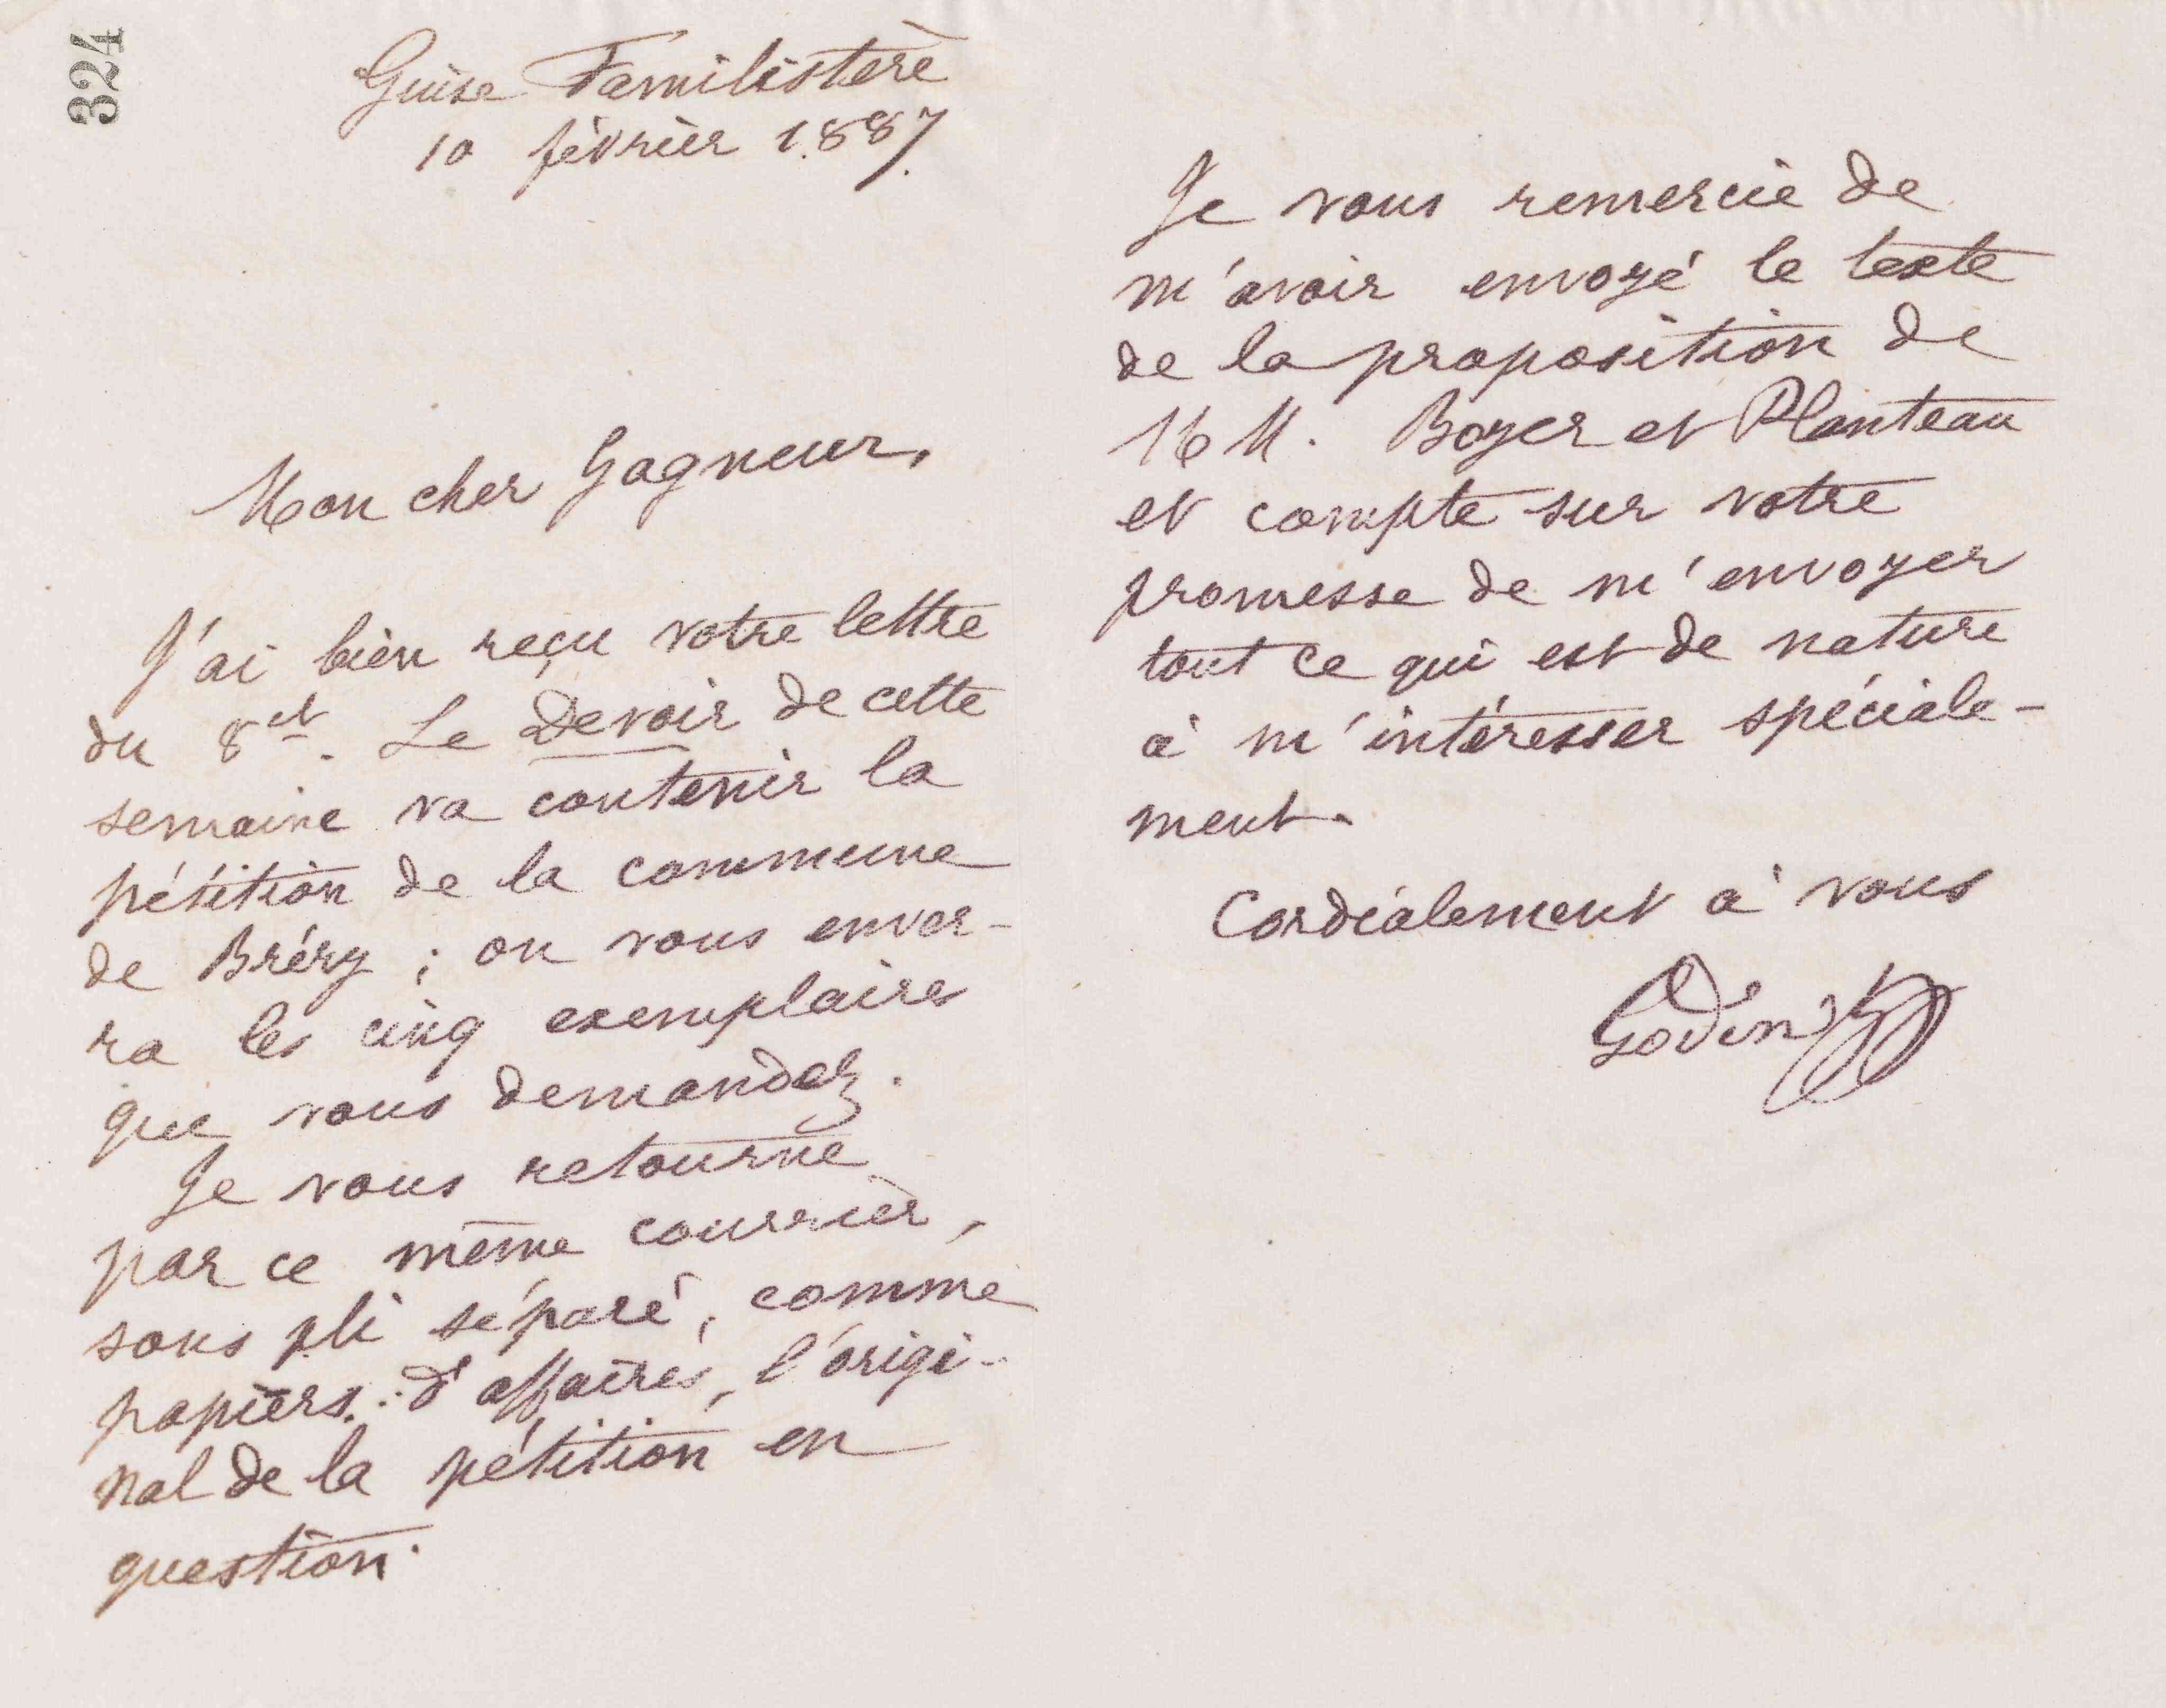 324
Guise Familistère
10 février 1887.
Mon cher Gagneur,
J'ai bien reçu votre lettre
du 8 ct. Le Devoir de cette
semaine va contenir la
pétition de la commune
de Bréry ; on vous enver-
ra les cinq exemplaires
que vous demandez.
Je vous retourne
par ce même courrier,
sous pli séparé, comme
papiers d'affaires, l'origi-
nal de la pétition en
question.
Je vous remercie de
m'avoir envoyé le texte
de la proposition de
MM. Boyer et Planteau
et compte sur votre
promesse de m'envoyer
tout ce qui est de nature
à m'intéresser spéciale-
ment.
Cordialement à vous
Godin